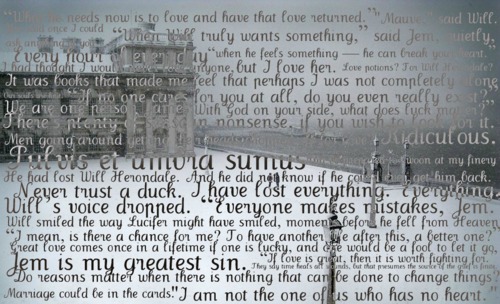 "What he needs now is to love and have that love returned." "Mauve?" said Will.
"When Will truly wants something," said Jem, quietly,
"when he feels something — he can break your heart."
but I love her. Love potions? For Will H
It was books that made me feel that perhaps I was not completely alone.
"If no one cares for you at all, do you even really exist?"
with God on your side, what does luck matter?
There's plenty nonsense, if you wish to look for it.
Men going around get Ridiculous.
Pulvis et umbra sumus on at my finery
He had lost Will Herondale. And he did not know if he could get him back.
Never trust a duck. I have lost everything. Everything.
Will's voice dropped. "Everyone makes mistakes, Jem.
Will smiled the way Lucifer might have smiled, moments before he fell from Heaven.
"I mean, is there a chance for me? To have another life after this, a better one?"
Great love comes once in a lifetime if one is lucky, and one would be a fool to let it go.
Jem is my greatest sin. "If love is great, then it is worth fighting for.
They say time heals all wounds, but that presumes the source of the grief is finite.
Do reasons matter when there is nothing that can be done to change things?
Marriage could be in the cards." I am not the one of us who has no heart.